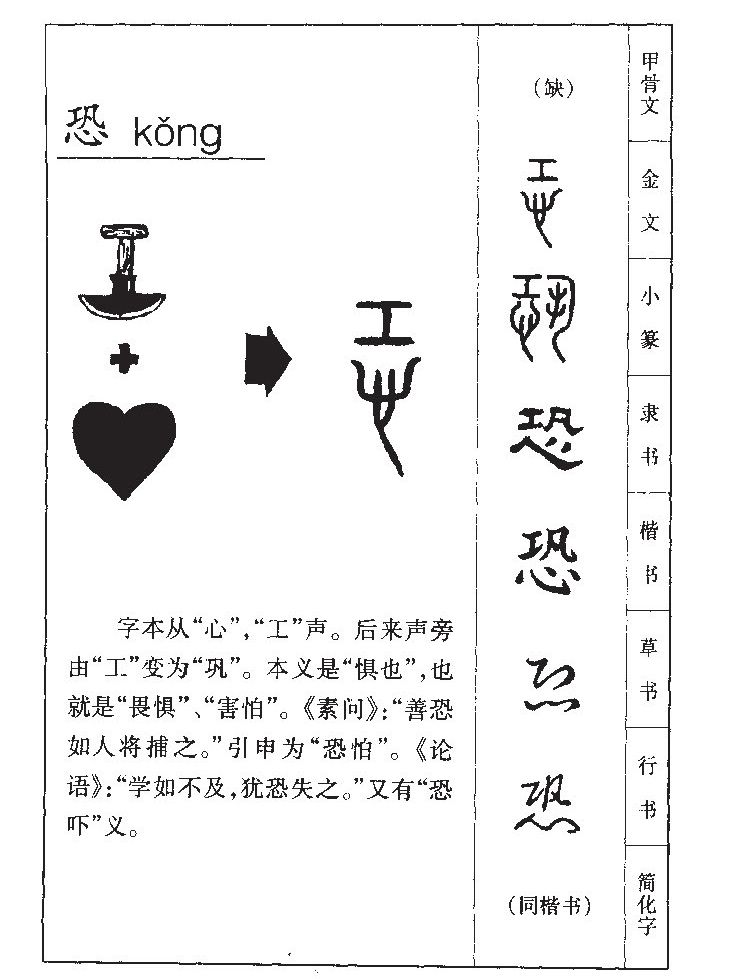 恐 kǒng
字本从“心”,“工”声。后来声旁
由“工”变为“巩”。本义是“惧也”,也
就是“畏惧”、“害怕”。《素问》:“善恐
如人将捕之。”引申为“恐怕”。《论
语》:“学如不及,犹恐失之。”又有“恐
吓”义。
(缺)
甲骨文
金文
恐
小篆
恐
隶书
恐
楷书
恐
草书
恐
行书
(同楷书)
简化字